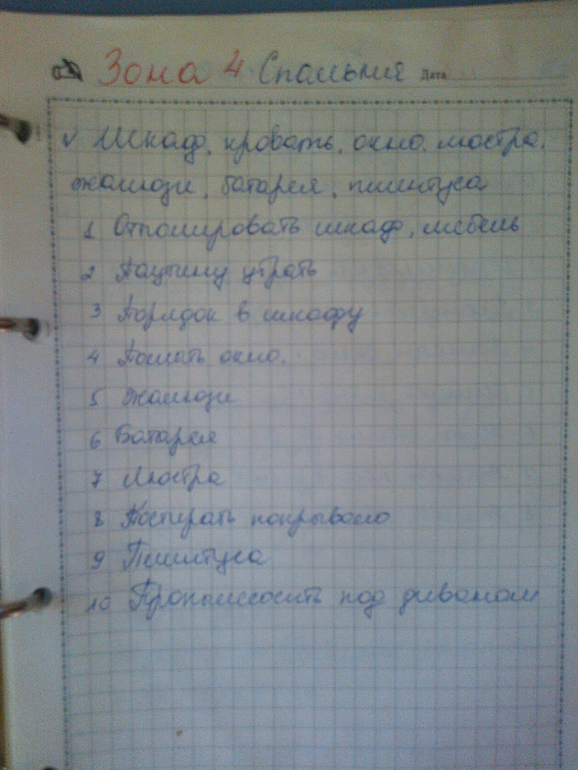 Зона 4 Спальня Дата
v Шкаф, кровать, окно, люстра,
жалюзи, батарея, плинтуса
1 Отполировать шкаф, мебель
2 Паутину убрать
3 Порядок в шкафу
4 Помыть окно.
5 Жалюзи
6 Батарея
7 Люстра
8 Постирать покрывало
9 Плинтуса
10 Пропылесосить под диваном